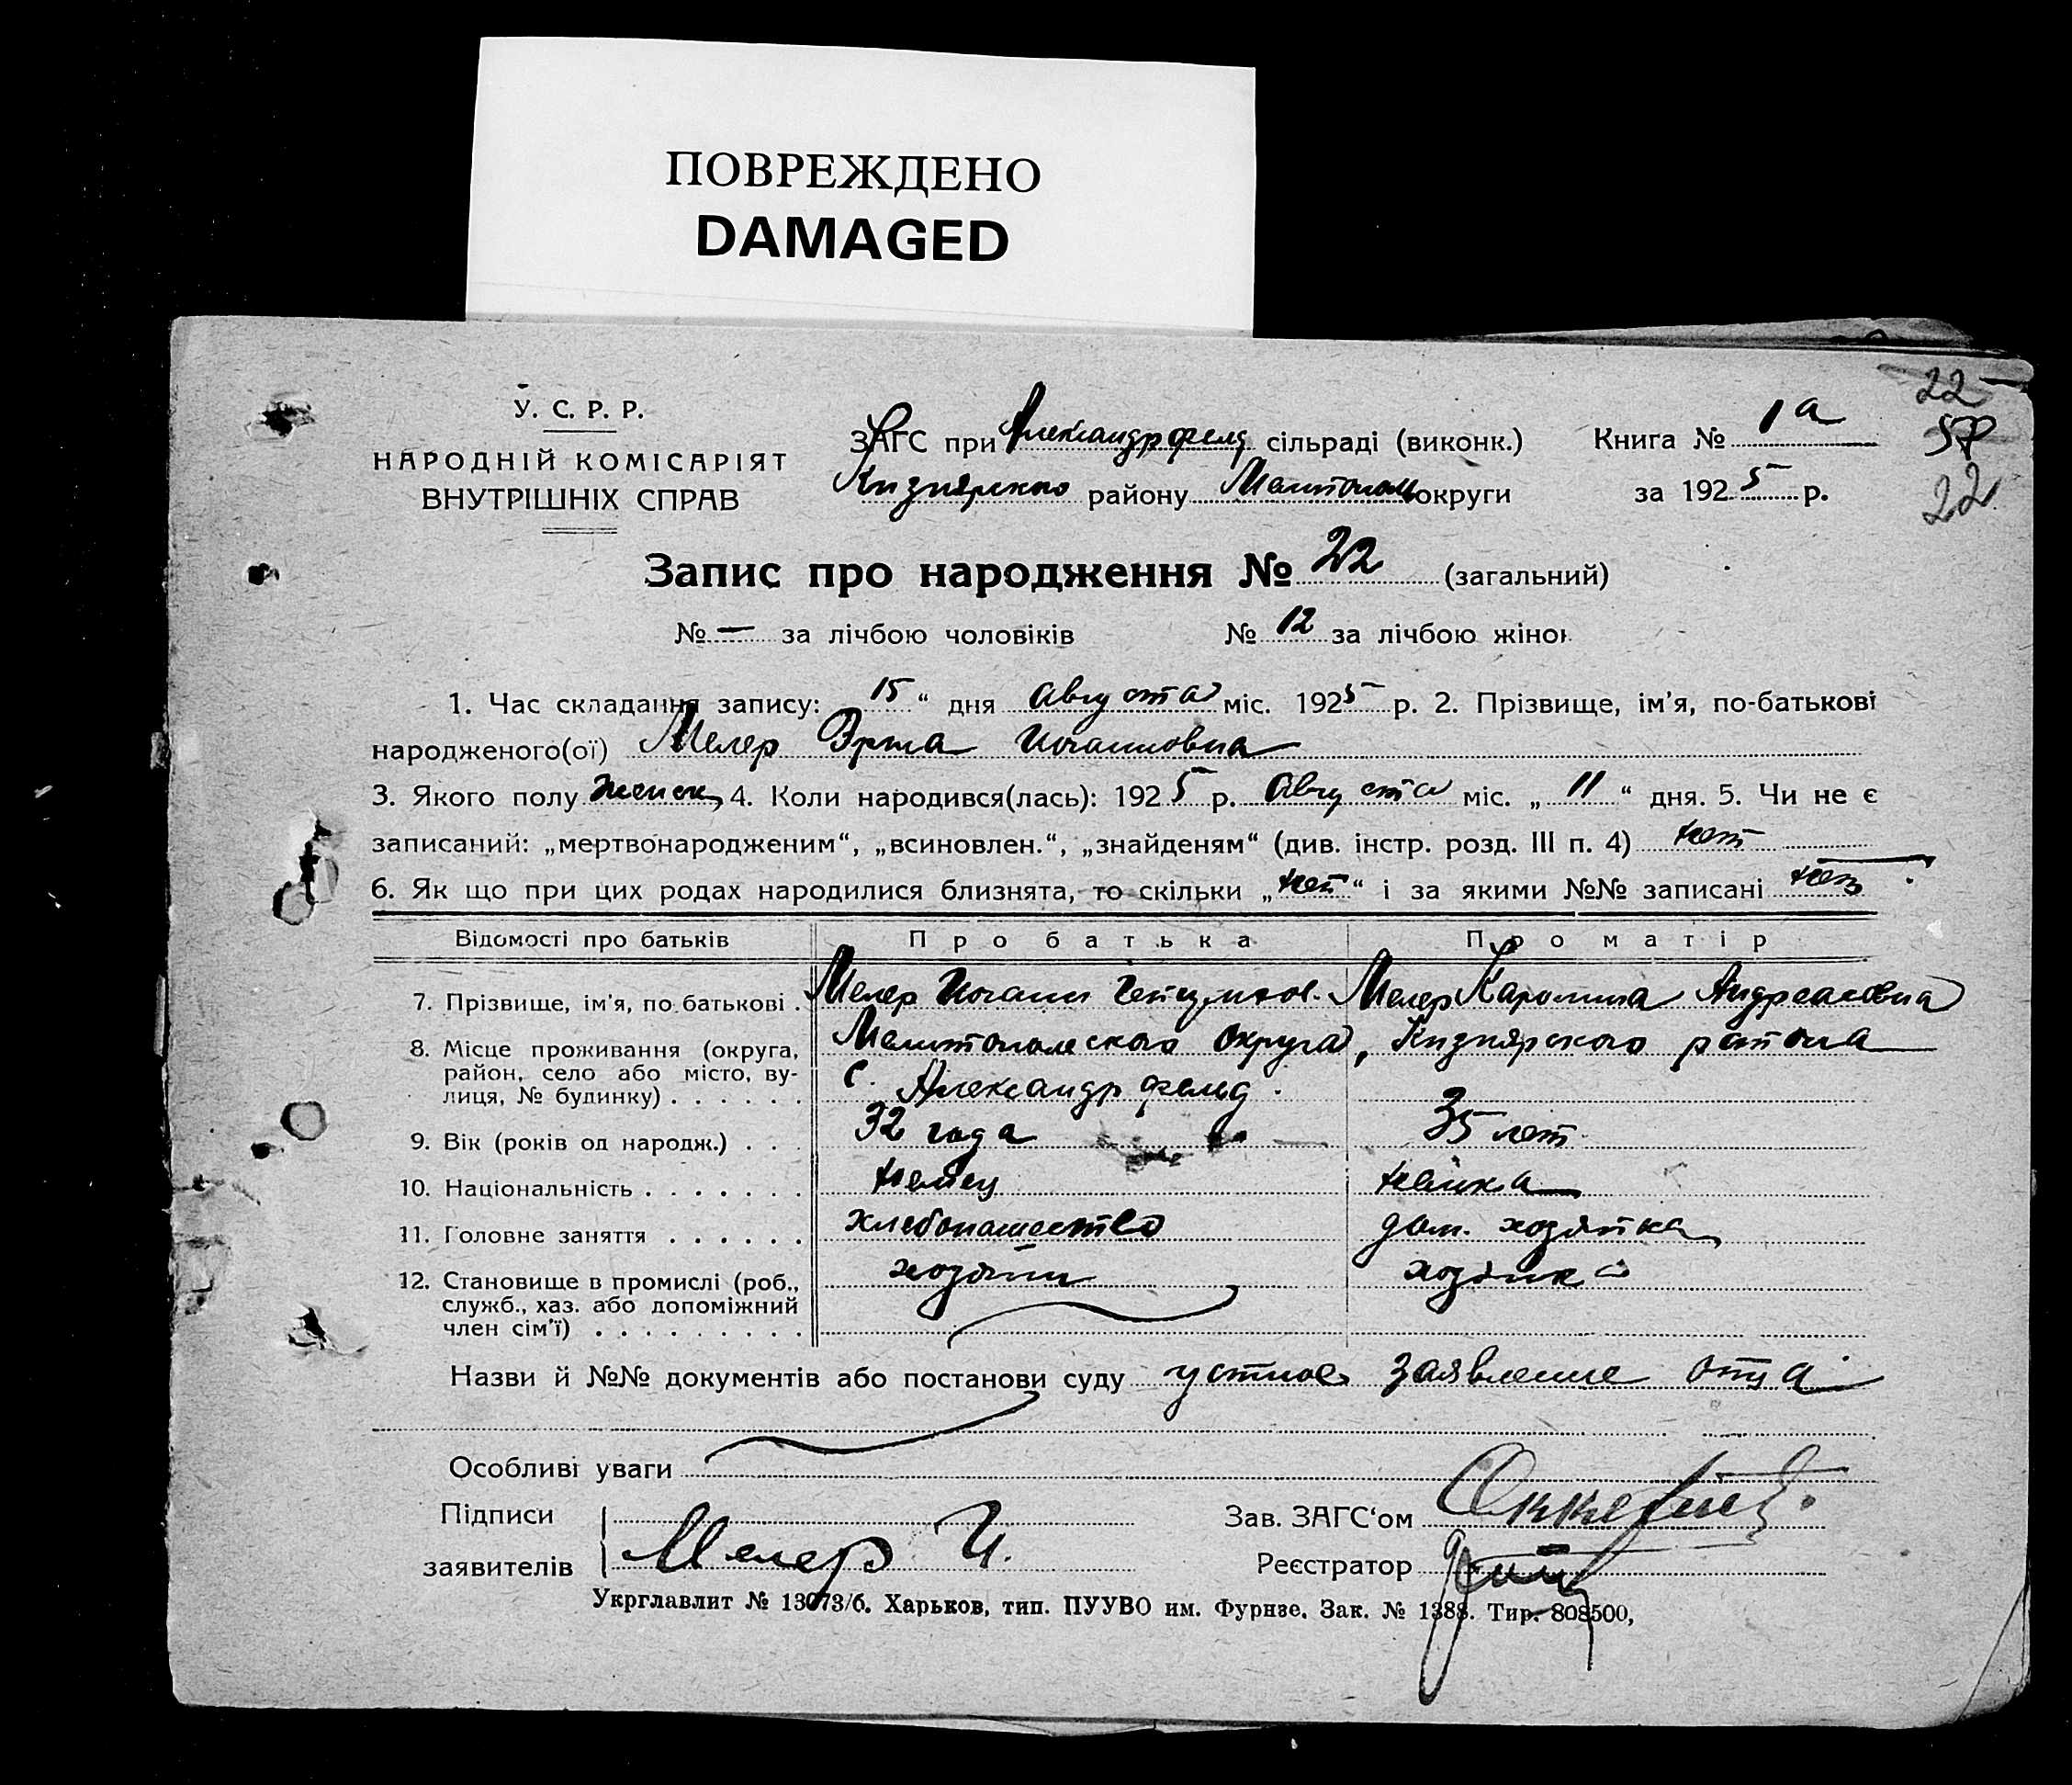 ПОВРЕЖДЕНО
DAMAGED
22
У. С. Р. Р.
НАРОДНІЙ КОМІСАРІЯТ
ВНУТРІШНІХ СПРАВ
ЗАГС при Александрфельд сільраді (виконк.) Книга № 1а
57
Кизиярского району Мелитополь округи за 1925 р.
22
Запис про народження № 22 (загальний)
№ — за лічбою чоловіків № 12 за лічбою жінок
1. Час складання запису: 15 “ дня Августа міс. 1925 р. 2. Прізвище, ім'я, по-батькові
народженого(ої) Мелер Эрна Иоганновна
3. Якого полу женск, 4. Коли народився(лась): 1925 р. Августа міс. „ 11 “ дня. 5. Чи не є
записаний: „мертвонародженим“, „всиновлен.“, „знайденям“ (див. інстр. розд. III п. 4) нет
6. Як що при цих родах народилися близнята, то скільки „нет“ і за якими №№ записані нет
Відомості про батьків Про батька Про матір
7. Прізвище, ім'я, по батькові . Мелер Иоганн Мелер Каролина Андреасовна
8. Місце проживання (округа, район, село або місто, вулиця, № будинку) . . . . . . Мелитопольского округа, Кизиярского района
с. Александрфельд.
9. Вік (років од народж.) . . . 32 года 35 лет
10. Національність . . . . . . . немец немка
11. Головне заняття . . . . . . хлебопашество дом. хозяйка
12. Становище в промислі (роб., служб., хаз. або допоміжний член сім'ї) . . . . . . . . . хозяин хозяйка
Назви й №№ документів або постанови суду устное заявление отца
Особливі уваги
Підписи Зав. ЗАГС‘ом
заявителів Мелер И. Реєстратор
Укрглавлит № 13073/б. Харьков, тип. ПУУВО им. Фурнзе. Зак. № 1388. Тир. 808500,